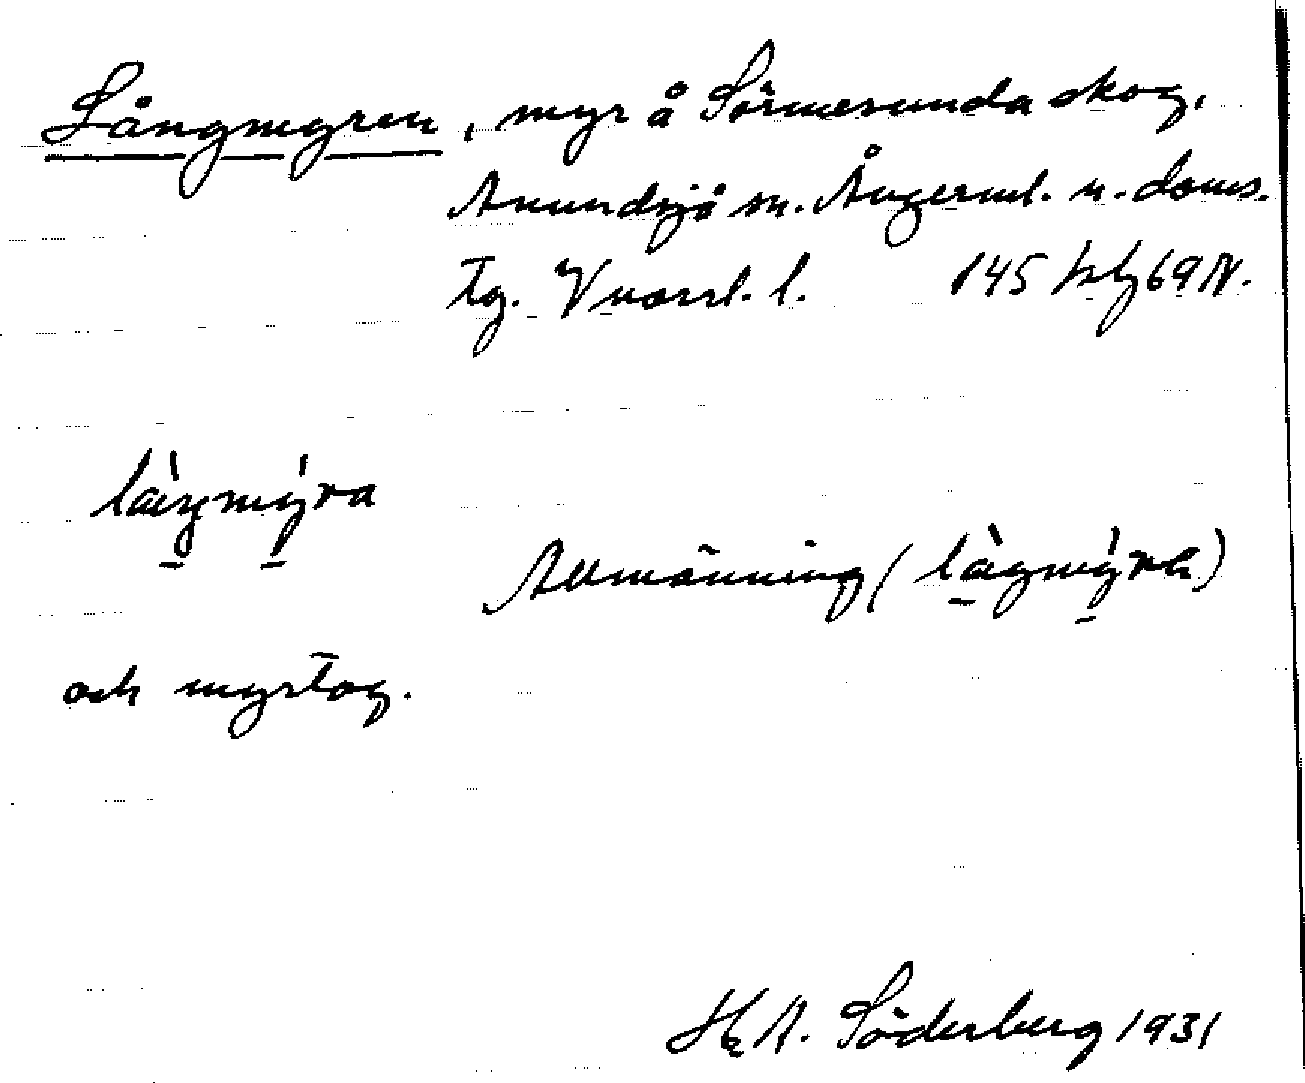 Långmyren, myr å Sörmesunda skog,
Anundsjö sn. Ångerml. n. doms.
tg. Vnorrl. l. 145 hly 69 N.
là̀ŋmýra
Allmänning (làŋmýrɑ)
och myrtag.
H. A. Söderberg 1931